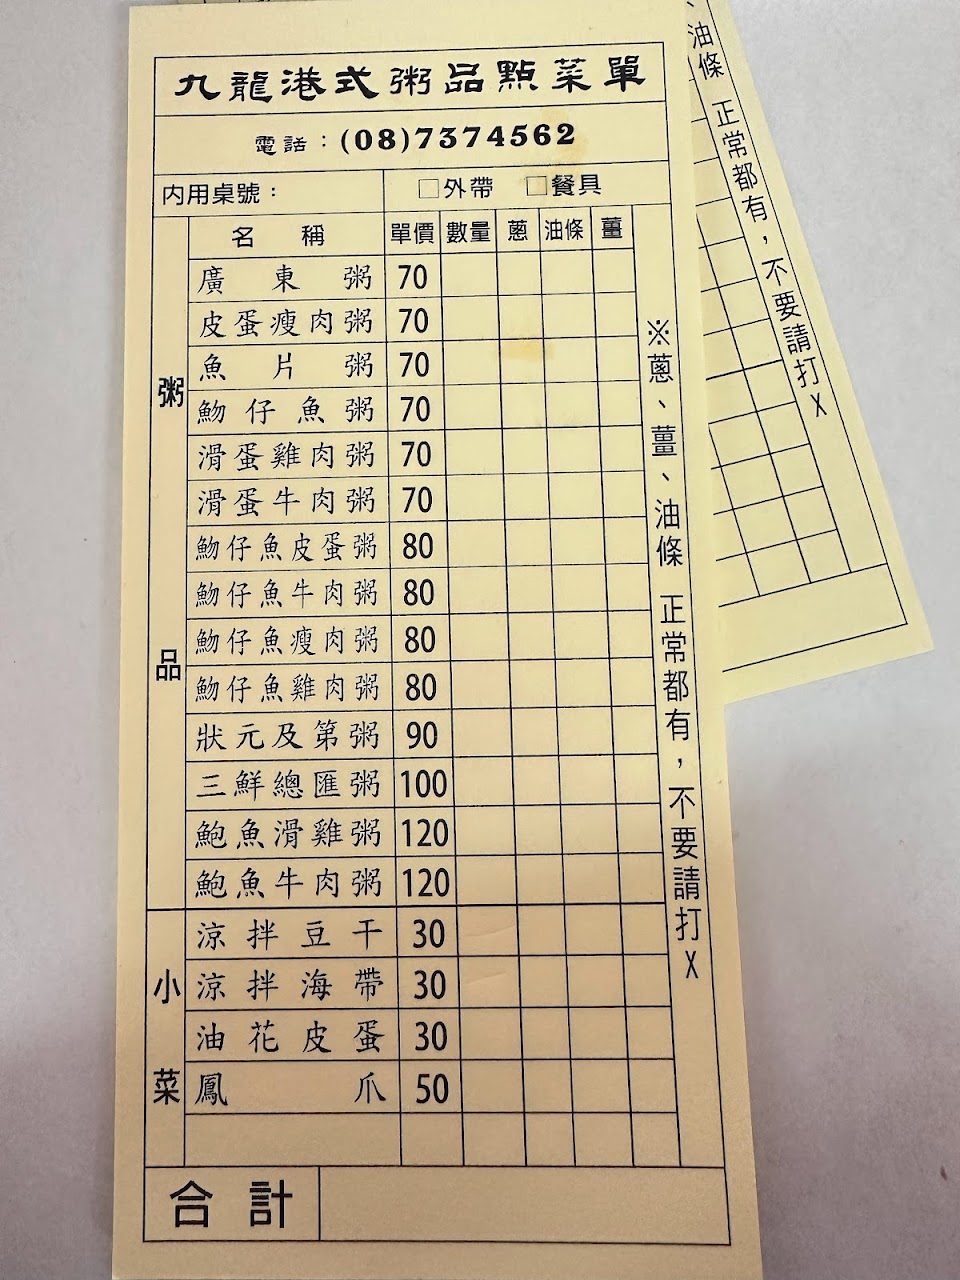 九龍港式粥品點菜單
電話：(08)7374562
內用桌號： □外帶 □餐具
名稱 單價 數量 蔥 油條 薑
粥品
廣東粥 70
皮蛋瘦肉粥 70
魚片粥 70
魩仔魚粥 70
滑蛋雞肉粥 70
滑蛋牛肉粥 70
魩仔魚皮蛋粥 80
魩仔魚牛肉粥 80
魩仔魚瘦肉粥 80
魩仔魚雞肉粥 80
狀元及第粥 90
三鮮總匯粥 100
鮑魚滑雞粥 120
鮑魚牛肉粥 120
小菜
涼拌豆干 30
涼拌海帶 30
油花皮蛋 30
鳳爪 50
合計
※蔥、薑、油條 正常都有，不要請打X
、油條 正常都有，不要請打X